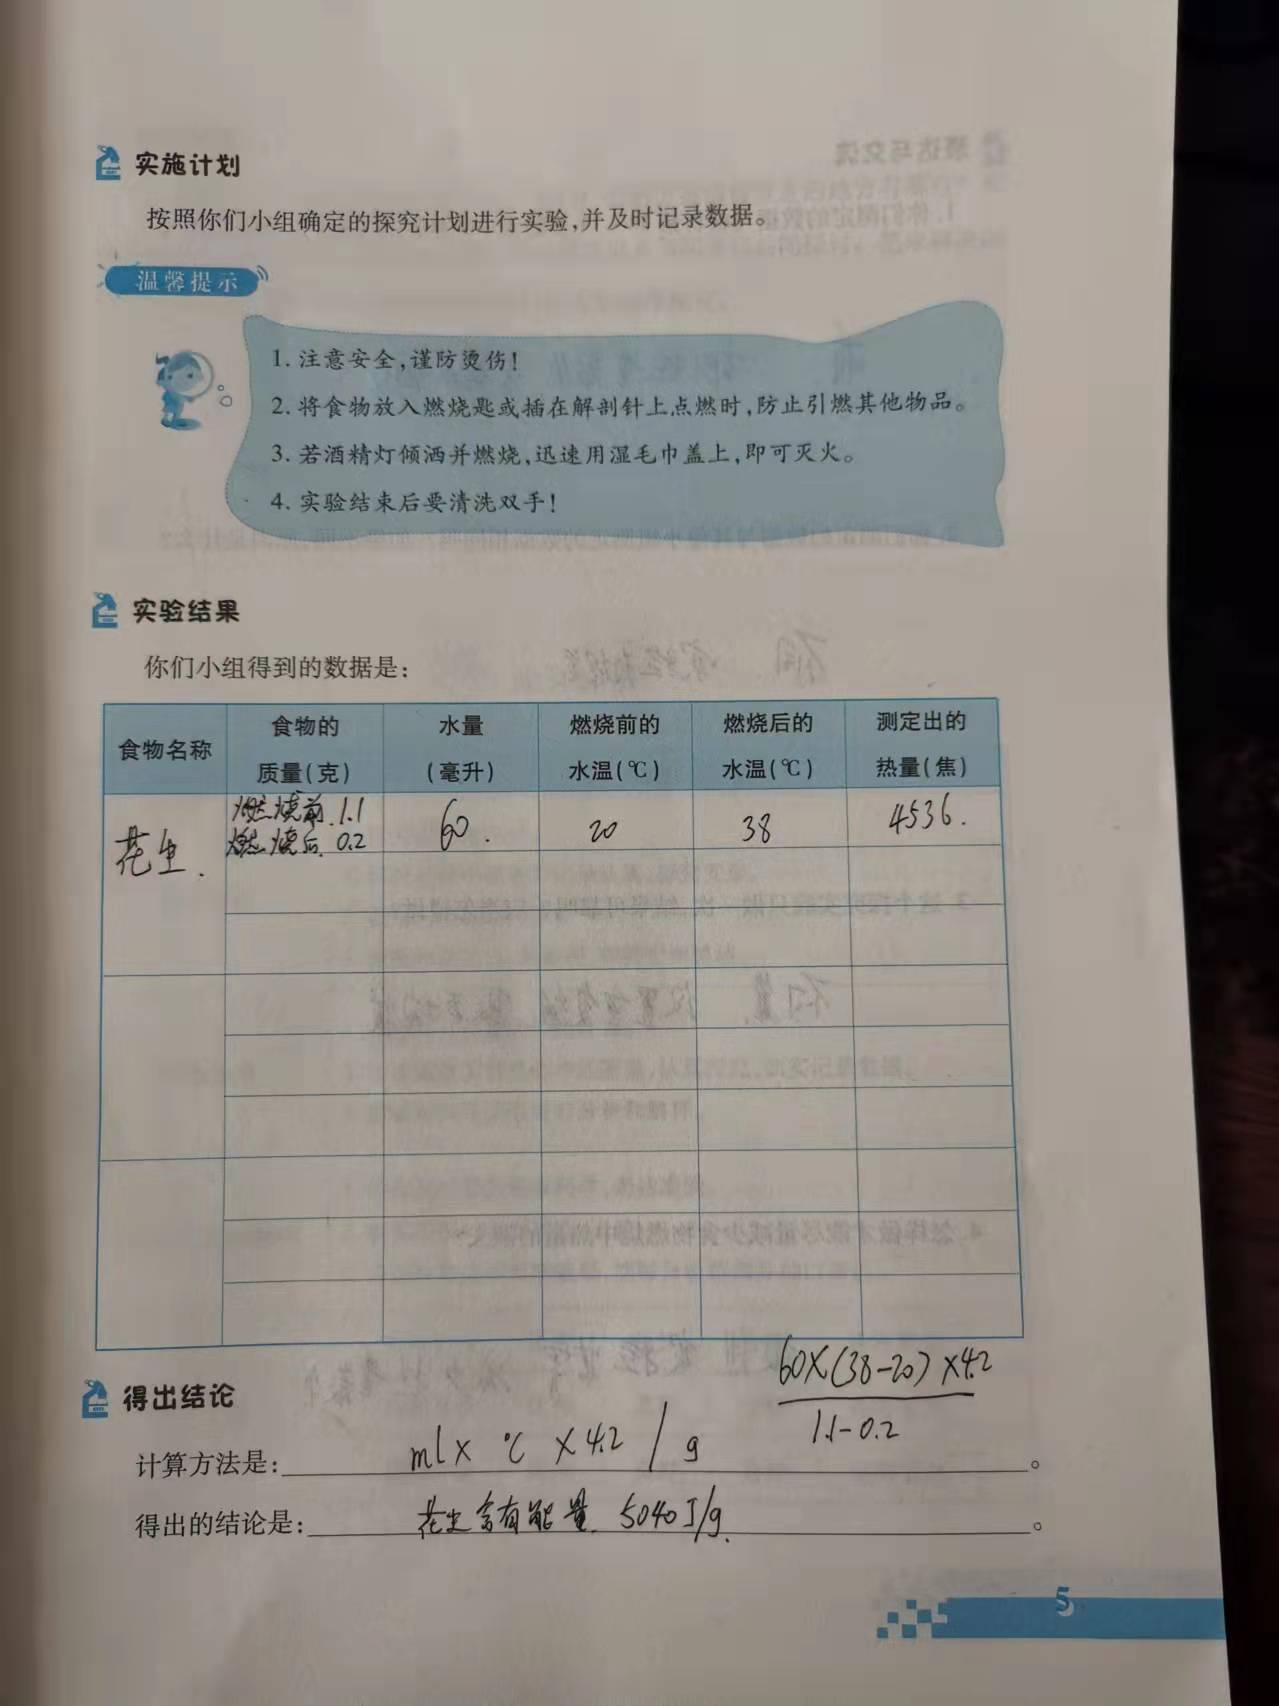 实施计划
按照你们小组确定的探究计划进行实验,并及时记录数据。
温馨提示
1. 注意安全,谨防烫伤!
2. 将食物放入燃烧匙或插在解剖针上点燃时,防止引燃其他物品。
3. 若酒精灯倾洒并燃烧,迅速用湿毛巾盖上,即可灭火。
4. 实验结束后要清洗双手!
实验结果
你们小组得到的数据是:
食物名称 食物的质量(克) 水量(毫升) 燃烧前的水温(℃) 燃烧后的水温(℃) 测定出的热量(焦)
花生. 燃烧前.1.1 60. 20 38 4536.
燃烧后.0.2
60×(38-20)×4.2
1.1-0.2
得出结论
计算方法是: ml× ℃ ×4.2 / g 。
得出的结论是: 花生含有能量. 5040J/g. 。
5